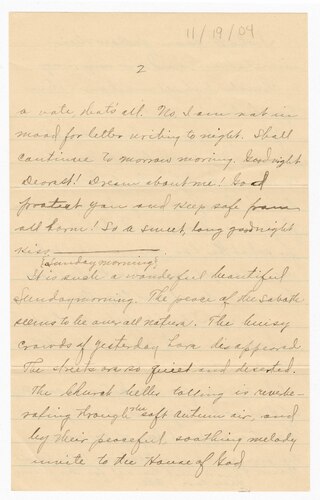 11/19/09
2
a vote that's all. No, I am not in
mood for letter writing to night. Shall
continue to morrow morning. Goodnight
Dearest! Dream about me! God
protect you and keep safe from
all harm! So a sweet, long goodnight
kiss
(Sunday morning)
It is such a wonderful beautiful
Sunday morning. The peace of the Sabath
seems to be over all nature. The busy
crowds of yesterday have disappeared
The streets are so quiet and deserted.
The Church belles tolling is reverbe-
rating through the soft autumn air, and
by their peaceful soothing melody
invite to the House of God